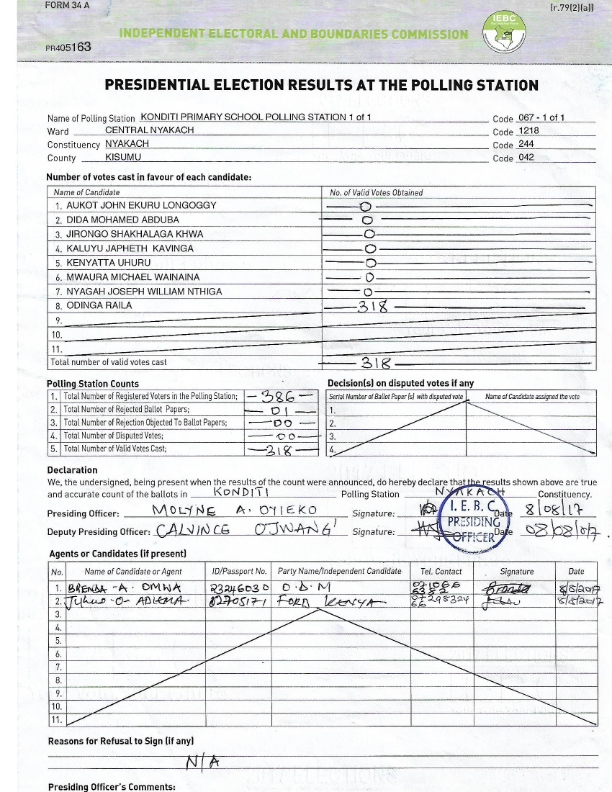 FORM 34 A
[r.79(2)(a)]
IEBC
INDEPENDENT ELECTORAL AND BOUNDARIES COMMISSION
PR405163
PRESIDENTIAL ELECTION RESULTS AT THE POLLING STATION
Name of Polling Station KONDITI PRIMARY SCHOOL POLLING STATION 1 of 1 Code 067 - 1 of 1
Ward CENTRAL NYAKACH Code 1218
Constituency NYAKACH Code 244
County KISUMU Code 042
Number of votes cast in favour of each candidate:
Name of Candidate No. of Valid Votes Obtained
1. AUKOT JOHN EKURU LONGOGGY 0
2. DIDA MOHAMED ABDUBA 0
3. JIRONGO SHAKHALAGA KHWA 0
4. KALUYU JAPHETH KAVINGA 0
5. KENYATTA UHURU 0
6. MWAURA MICHAEL WAINAINA 0
7. NYAGAH JOSEPH WILLIAM NTHIGA 0
8. ODINGA RAILA 318
9.
10.
11.
Total number of valid votes cast 318
Polling Station Counts
1. Total Number of Registered Voters in the Polling Station; 386
2. Total Number of Rejected Ballot Papers; 01
3. Total Number of Rejection Objected To Ballot Papers; 00
4. Total Number of Disputed Votes; 00
5. Total Number of Valid Votes Cast; 318
Decision(s) on disputed votes if any
Serial Number of Ballot Paper(s) with disputed vote Name of Candidate assigned the vote
1.
2.
3.
4.
Declaration
We, the undersigned, being present when the results of the count were announced, do hereby declare that the results shown above are true
and accurate count of the ballots in KONDITI Polling Station NYAKACH Constituency.
Presiding Officer: MOLYNE A. OYIEKO Signature: Date 8/08/17
Deputy Presiding Officer: CALVINCE OJWANG' Signature: Date 08/08/017
I.E.B.C
PRESIDING
OFFICER
Agents or Candidates (if present)
No. Name of Candidate or Agent ID/Passport No. Party Name/Independent Candidate Tel. Contact Signature Date
1. BRENDA A. OMWA 23246030 O.D.M 8/8/2017
2. 8/8/2017 FORD KENYA
3.
4.
5.
6.
7.
8.
9.
10.
11.
Reasons for Refusal to Sign (if any)
N/A
Presiding Officer's Comments: